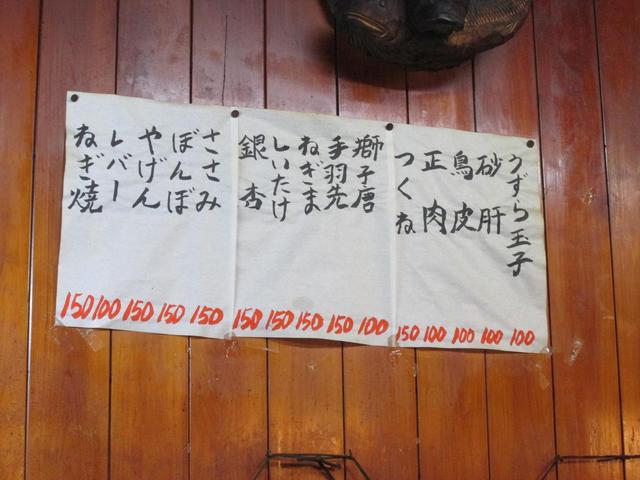 うずら玉子 100
砂肝 100
鳥皮 100
正肉 100
つくね 150
獅子唐 100
手羽先 150
ねぎま 150
しいたけ 150
銀杏 150
ささみ 150
ぼんぼ 150
やげん 150
レバー 100
ねぎ焼 150